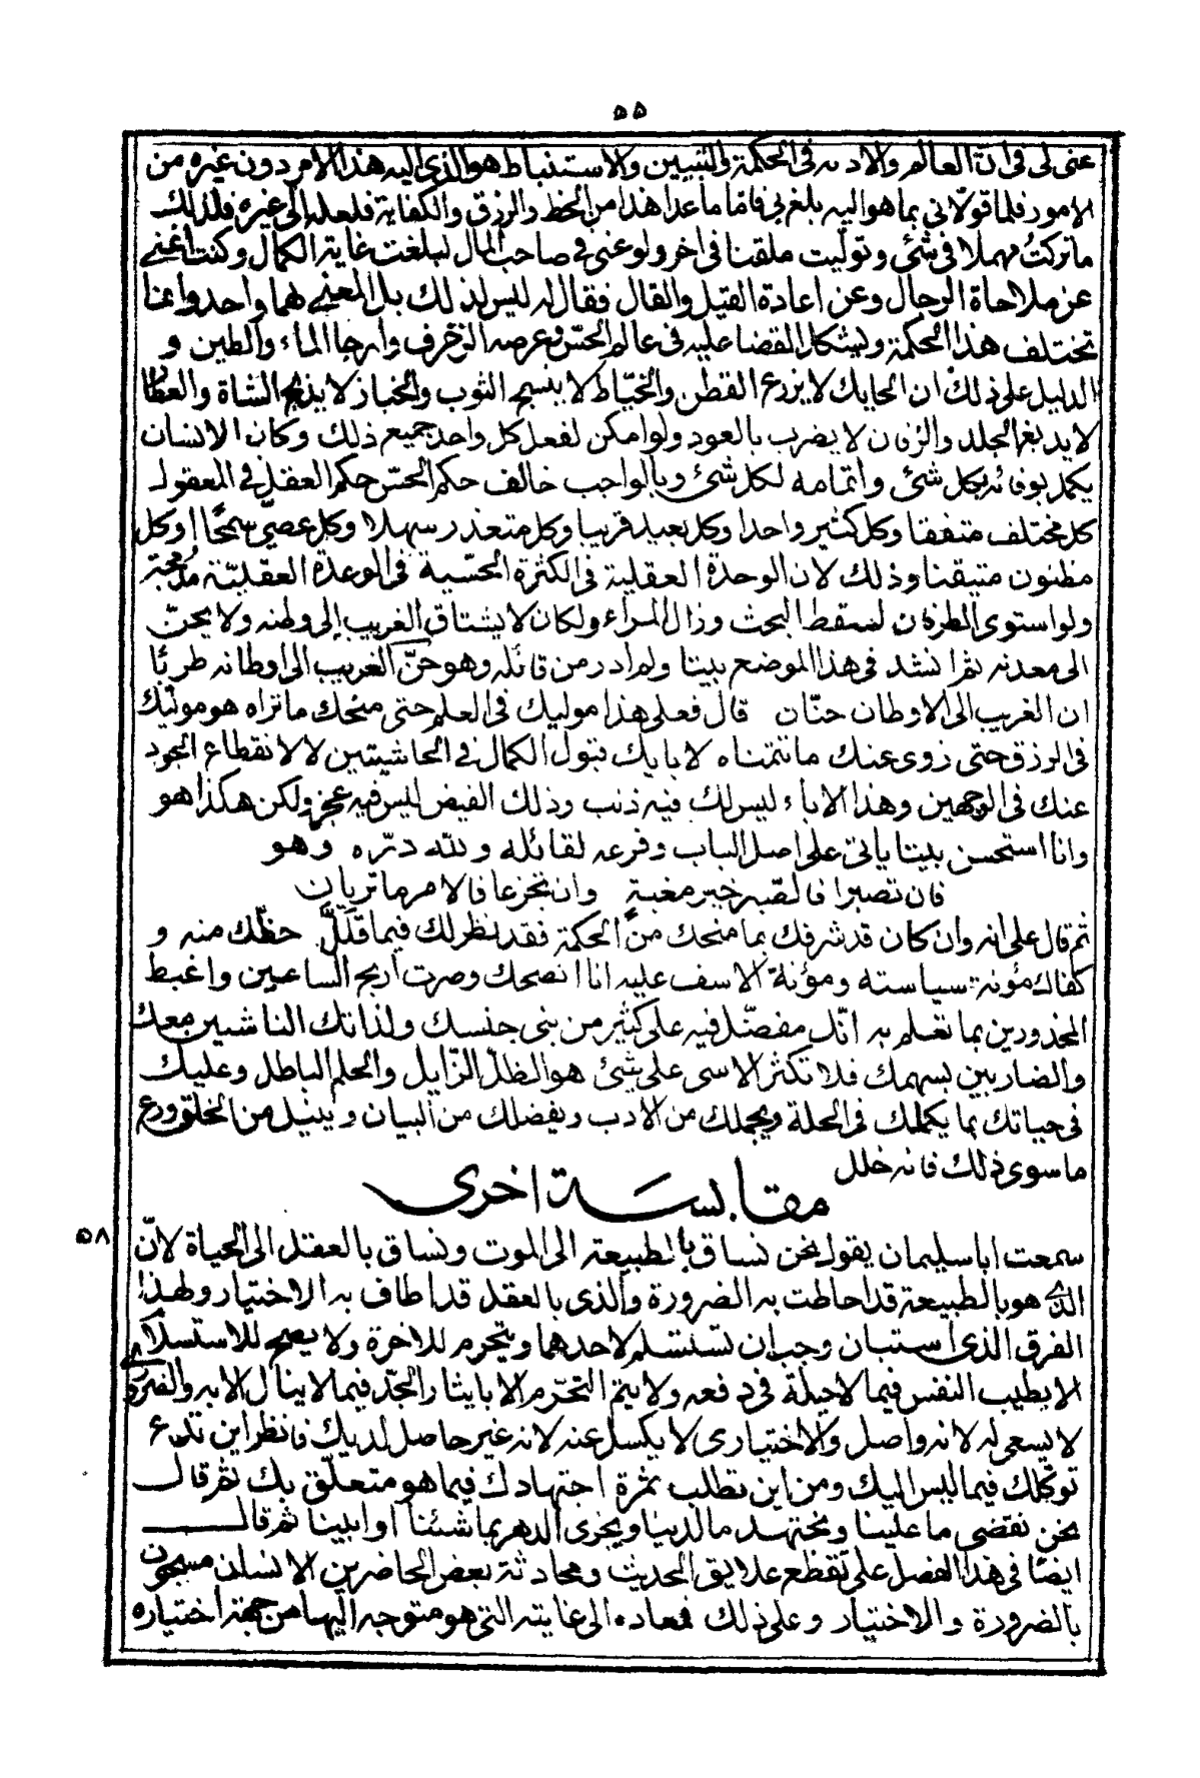 ٥٥
عنى لى فى ان العالم والادب فى الحكمة والتبيين والاستنباط هو الذى اليه هذا الامر دون غيره من
الامور فلما قولانى بما هو اليه بلغ بى فاما ما عدا هذا من الحظ والرزق والكفاية فلعله الى غيره فلذلك
ما تركت مهملا فى شئ وتوليت ملقنا فى اخر ولو عنى فى صاحب المال لبلغت غاية الكمال وكنت اغنى
عن ملاحاة الرجال وعن اعادة القيل والقال فقال له ليس لذلك بل المعنى لهما واحد وانما
تختلف هذا الحكمة ويشكل القضا عليه فى عالم الحس وعرصه الزخرف وارجا الماء والطين و
الدليل على ذلك ان الحايك لا يزرع القطن والخياط لا ينسج الثوب والخباز لا يذبح الشاة والعطار
لا يدبغ الجلد والزفان لا يضرب بالعود ولو امكن لفعل كل واحد جميع ذلك وكان الانسان
يكمل بوفائه بكل شئ واتمامه لكل شئ وبالواجب خالف حكم الحس حكم العقل فى المعقول
كل مختلف متفقا وكل كثير واحدا وكل بعيد قريبا وكل متعذر سهلا وكل عصى سمحا وكل
مظنون متيقنا وذلك لان الوحدة العقلية فى الكثرة الحسية فى الوحدة العقلية
ولو استوى الطرفان لسقط البحث وزال المراء ولكان لا يشتاق الغريب الى وطنه ولا يحن
الى معدنه ثم انشد فى هذا الموضع بيتا ولم ادر من قائله وهو حن الغريب الى اوطانه طربا
ان الغريب الى الاوطان حنان قال فعلى هذا موليك فى العلم حتى منحك ما تراه هو موليك
فى الرزق حتى زوى عنك ما تتمناه لابايك قبول الكمال فى الحاشيتين لا لانقطاع الجود
عنك فى الوجهين وهذا الاباء ليس لك فيه ذنب وذلك الفيض ليس فيه عجز ولكن هكذا هو
وانا استحسن بيتا ياتى على اصل الباب وفرعه لقائله ولله دره وهو
فان تصبرا فالصبر خير مغبة وان تجزعا فالامر ما تريان
ثم قال على انه وان كان قد شرفك بما منحك من الحكمة فقد نظر لك فيما قلل حظك منه و
كفاك مؤنة سياسته ومؤنة الاسف عليه انا انصحك وصرت اربح الساعين واغبط
المخدورين بما تعلم به انك مفضل فيه على كثير من بنى جنسك ولذاتك الناشين معك
والضاربين بسهمك فلا تكثر الاسى على شئ هو الظل الزايل والحلم الباطل وعليك
فى حياتك بما يكملك فى الحلة ويجملك من الادب ويفضلك من البيان وينبل من الخلق ودع
ما سوى ذلك فانه خلل
مقابسة اخرى
٥٨
سمعت ابا سليمان يقول نحن نساق بالطبيعة الى الموت ونساق بالعقل الى الحياة لان
الذى هو بالطبيعة قد احاطت به الضرورة والذى بالعقل قد اطاف به الاختيار ولهذا
الفرق الذى استبان وجب ان تستسلم لاحدهما ويتحرم للاخرة ولا يصح للاستسلام
الا بطيب النفس فيما لا حيلة فى دفعه ولا يتم التحرم الا بايثار الجد فيما لا ينال الا به والضرورى
لا يسعى له لانه واصل والاختيارى لا يكسل عنه لانه غير حاصل لديك فانظر اين تدع
توكلك فيما ليس اليك ومن اين تطلب ثمرة اجتهادك فيما هو متعلق بك ثم قال
نحن نقضى ما علينا ونجتهد مالدينا ويجرى الدهر بما شئنا او ابينا ثم قال
ايضا فى هذا الفصل على تقطع علايق الحديث ومحادثة بعض الحاضرين الانسان مسجون
بالضرورة والاختيار وعلى ذلك فمعاده الى غايته التى هو متوجه اليها من جهة اختياره